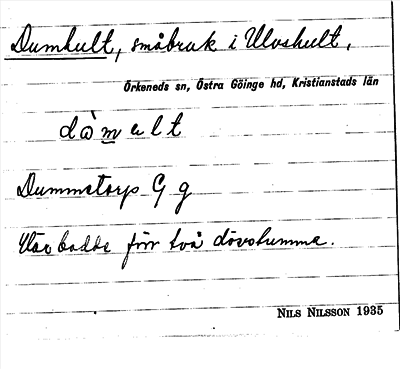 Dumhult, småbruk i Ulvshult,
Örkeneds sn, Östra Göinge hd, Kristianstads län
dòm u l t
Dummetorp G g
Där bodde förr två dövstumma.
NILS NILSSON 1935